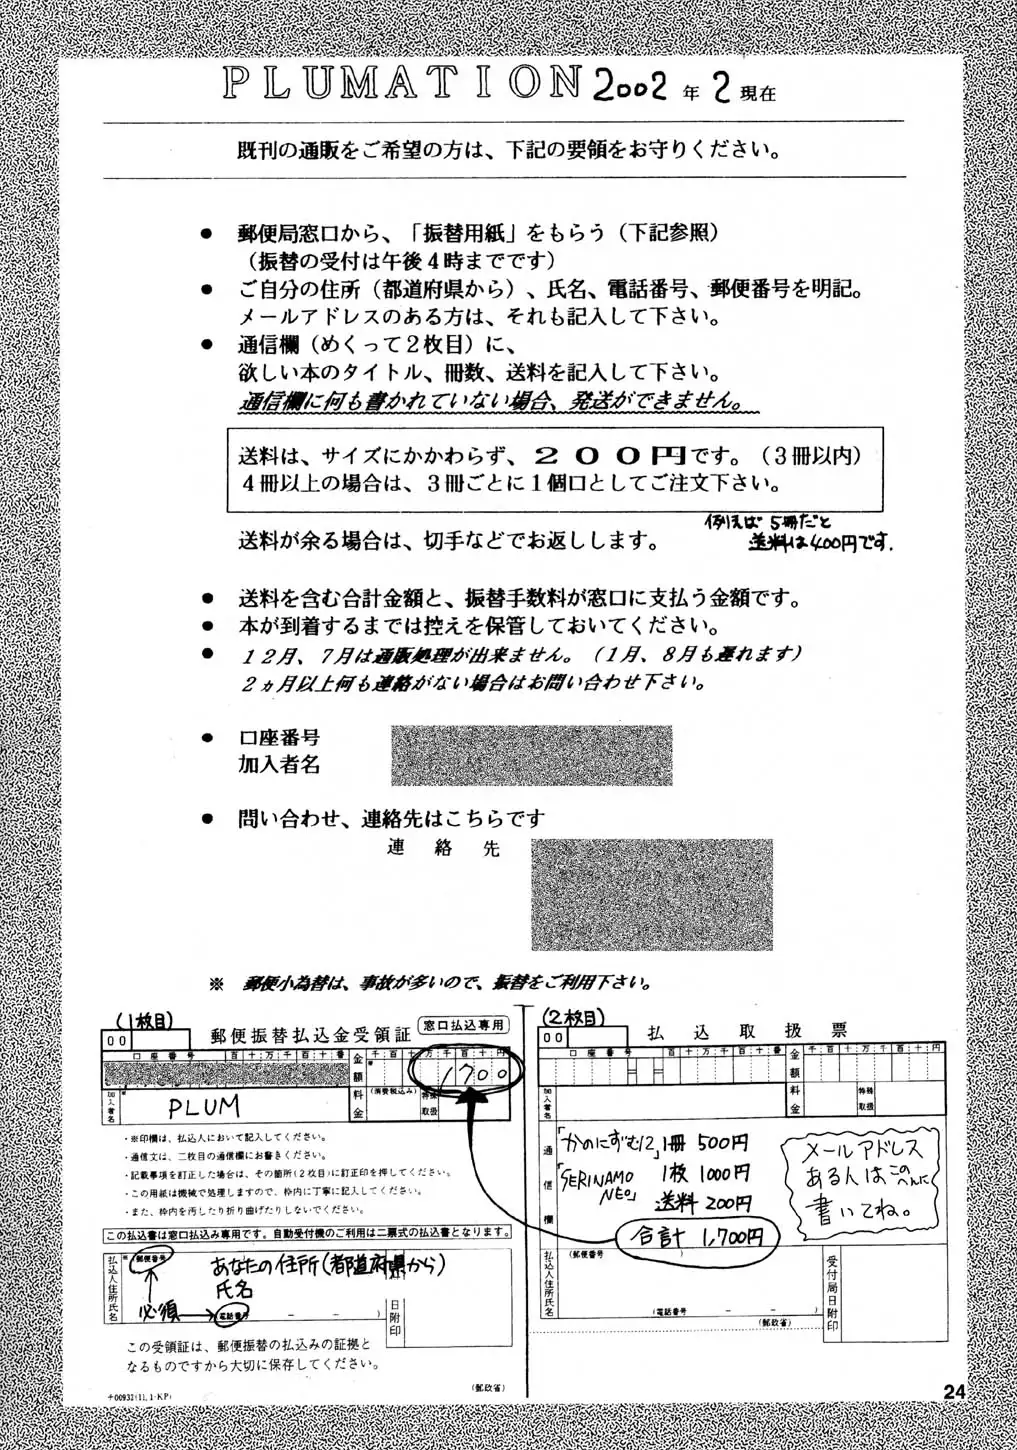 PLUMATION 2002 年 2 現在
既刊の通販をご希望の方は、下記の要領をお守りください。
● 郵便局窓口から、「振替用紙」をもらう（下記参照）
（振替の受付は午後４時までです）
● ご自分の住所（都道府県から）、氏名、電話番号、郵便番号を明記。
メールアドレスのある方は、それも記入して下さい。
● 通信欄（めくって２枚目）に、
欲しい本のタイトル、冊数、送料を記入して下さい。
通信欄に何も書かれていない場合、発送ができません。
送料は、サイズにかかわらず、２００円です。（３冊以内）
４冊以上の場合は、３冊ごとに１個口としてご注文下さい。
例えば 5冊だと
送料は400円です.
送料が余る場合は、切手などでお返しします。
● 送料を含む合計金額と、振替手数料が窓口に支払う金額です。
● 本が到着するまでは控えを保管しておいてください。
● １２月、７月は通販処理が出来ません。（１月、８月も遅れます）
２ヵ月以上何も連絡がない場合はお問い合わせ下さい。
● 口座番号
加入者名
● 問い合わせ、連絡先はこちらです
連 絡 先
※ 郵便小為替は、事故が多いので、振替をご利用下さい。
(1枚目)
00
郵便振替払込金受領証
窓口払込専用
口座番号 百十万千百十番
金額
千百十万千百十円
1700
加入者名
PLUM
料金
(消費税込み)
特殊取扱
・※印欄は、払込人において記入してください。
・通信文は、二枚目の通信欄にお書きください。
・記載事項を訂正した場合は、その箇所(２枚目)に訂正印を押してください。
・この用紙は機械で処理しますので、枠内に丁寧に記入してください。
・また、枠内を汚したり折り曲げたりしないでください。
この払込書は窓口払込み専用です。自動受付機のご利用は二票式の払込書となります。
払込人住所氏名
※郵便番号
あなたの住所(都道府県から)
氏名
必須
(電話番号 － － )
日附印
この受領証は、郵便振替の払込みの証拠と
なるものですから大切に保存してください。
(郵政省)
(2枚目)
00
払込取扱票
口座番号 百十万千百十番
金額
千百十万千百十円
加入者名
料金
特殊取扱
通信欄
「かのにずむ12」1冊 500円
「SERINAMO
NEO」 1枚 1000円
送料 200円
合計 1,700円
メールアドレス
ある人はこのへんに
書いてね。
払込人住所氏名
(郵便番号 )
(電話番号 － － )
(郵政省)
受付局日附印
24